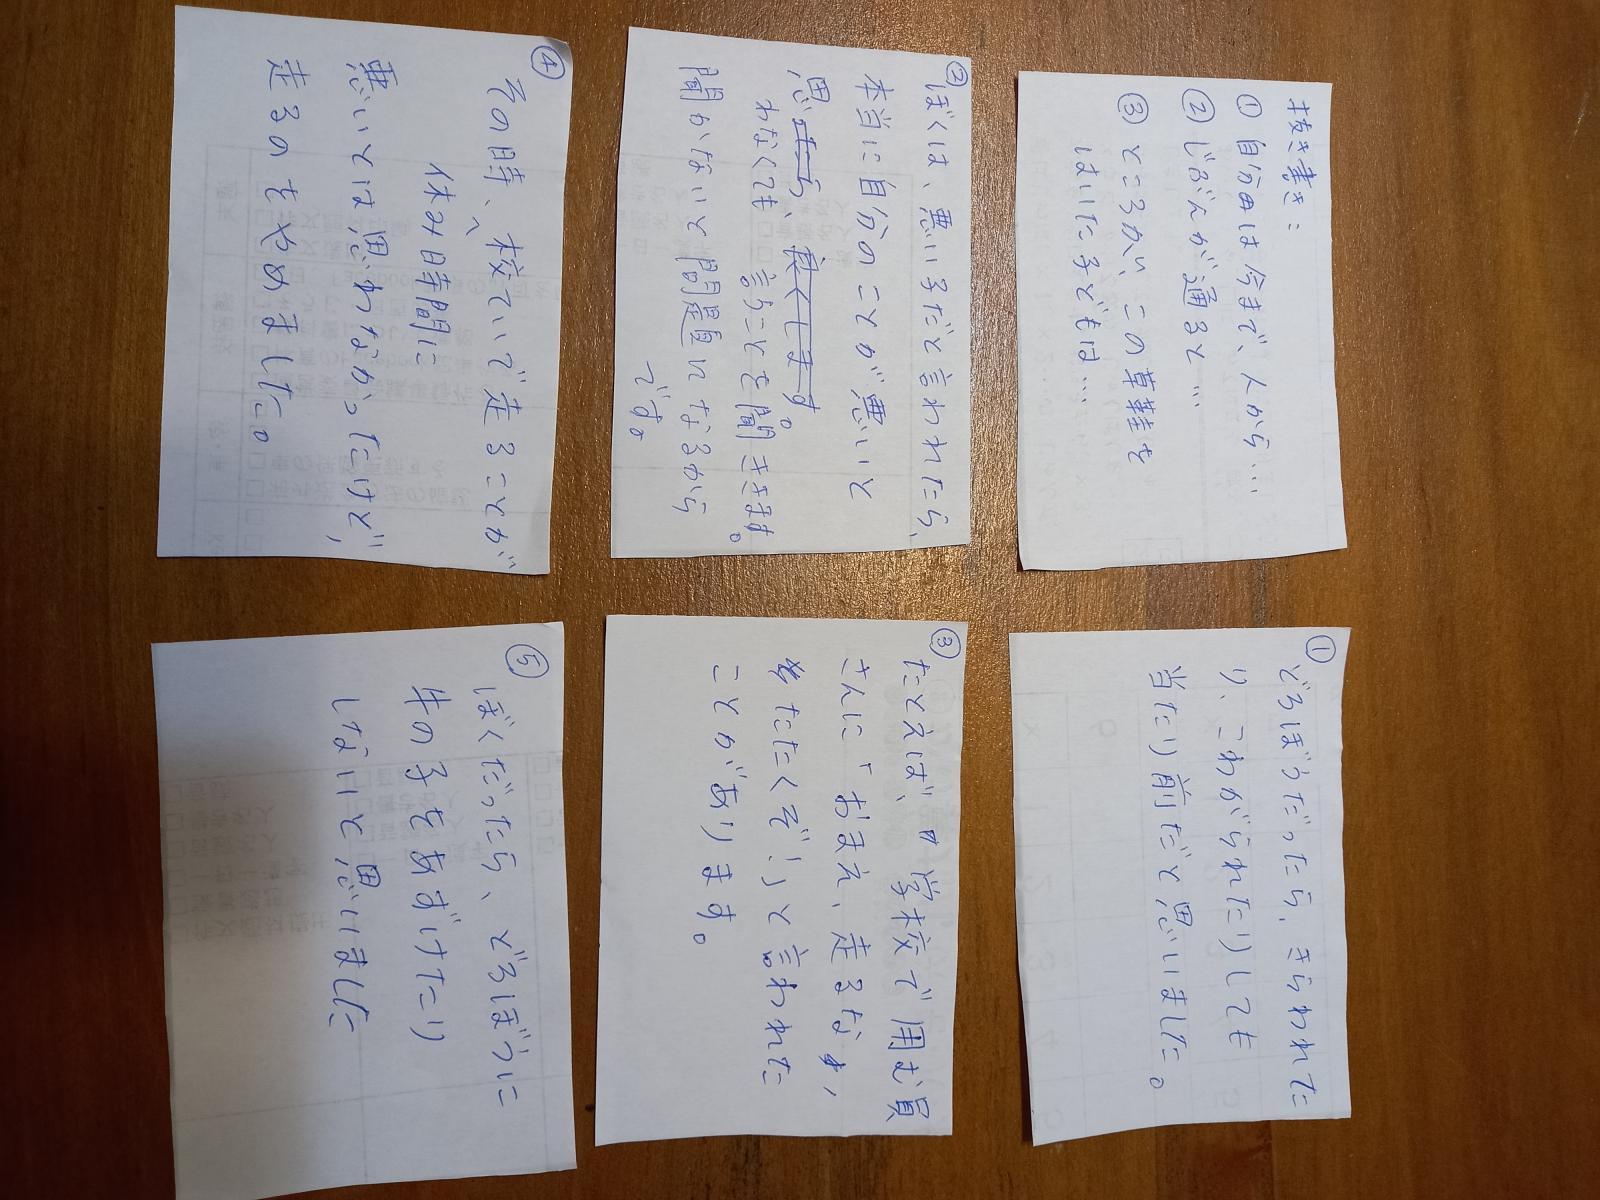 抜き書き：
① 自分は今まで、人から…
② じぶんが通ると…
③ ところが、この草鞋を
はいた子どもは…
①
どろぼうだったら、きらわれた
り、こわがられたりしても
当たり前だと思いました。
②
ぼくは、悪い子だと言われたら、
本当に自分のことが悪いと
思ったら、良くします。
わなくても言うことを聞きます。
聞かないと問題になるから
です。
③
たとえば、学校で用む員
さんに「おまえ、走るな、
たたくぞ！」と言われた
ことがあります。
④
その時、校ていで走ることが
休み時間に
悪いとは思わなかったけど、
走るのをやめました。
⑤
ぼくだったら、どろぼうに
牛の子をあずけたり
しないと思いました